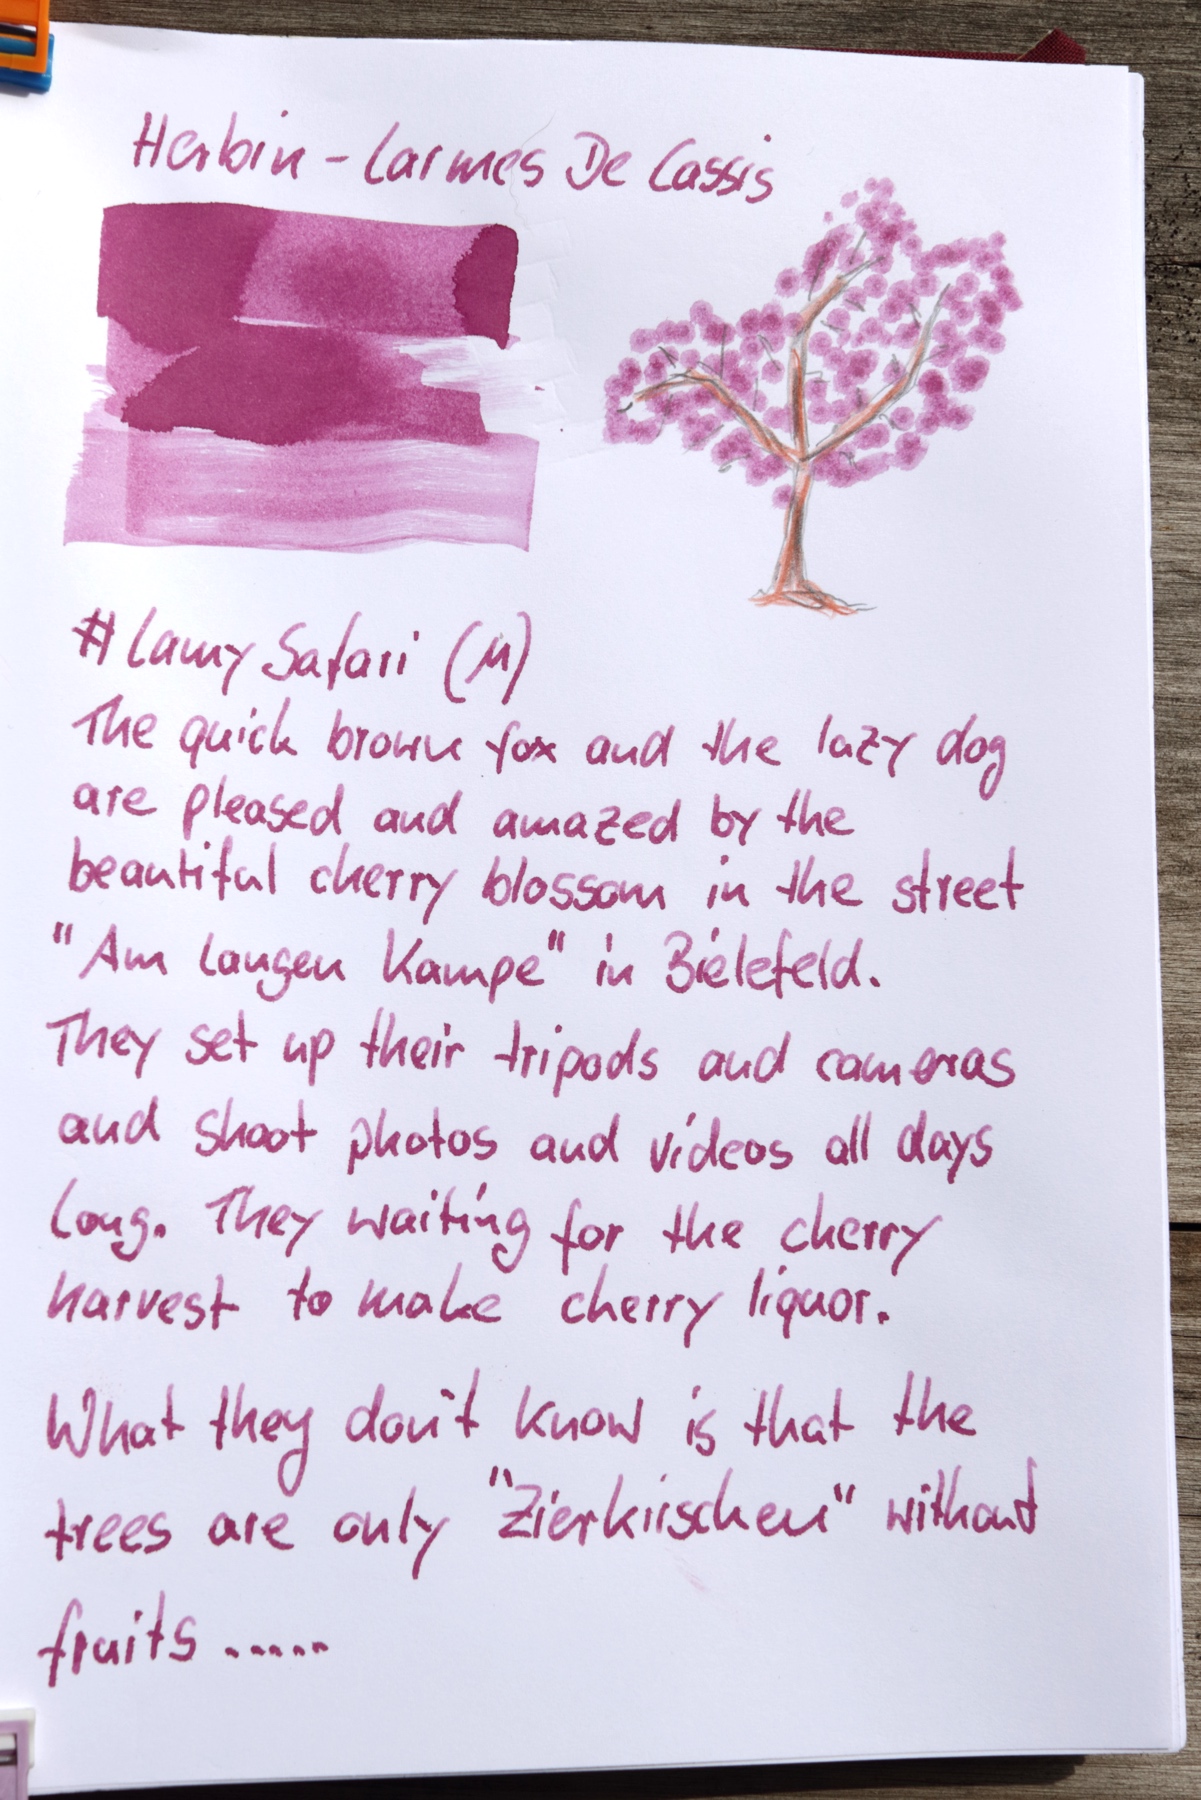 Herbin - Larmes De Cassis
# Lamy Safari (M)
The quick brown fox and the lazy dog
are pleased and amazed by the
beautiful cherry blossom in the street
"Am langen Kampe" in Bielefeld.
They set up their tripods and cameras
and shoot photos and videos all days
long. They waiting for the cherry
harvest to make cherry liquor.
What they don't know is that the
trees are only "Zierkirschen" without
fruits .....